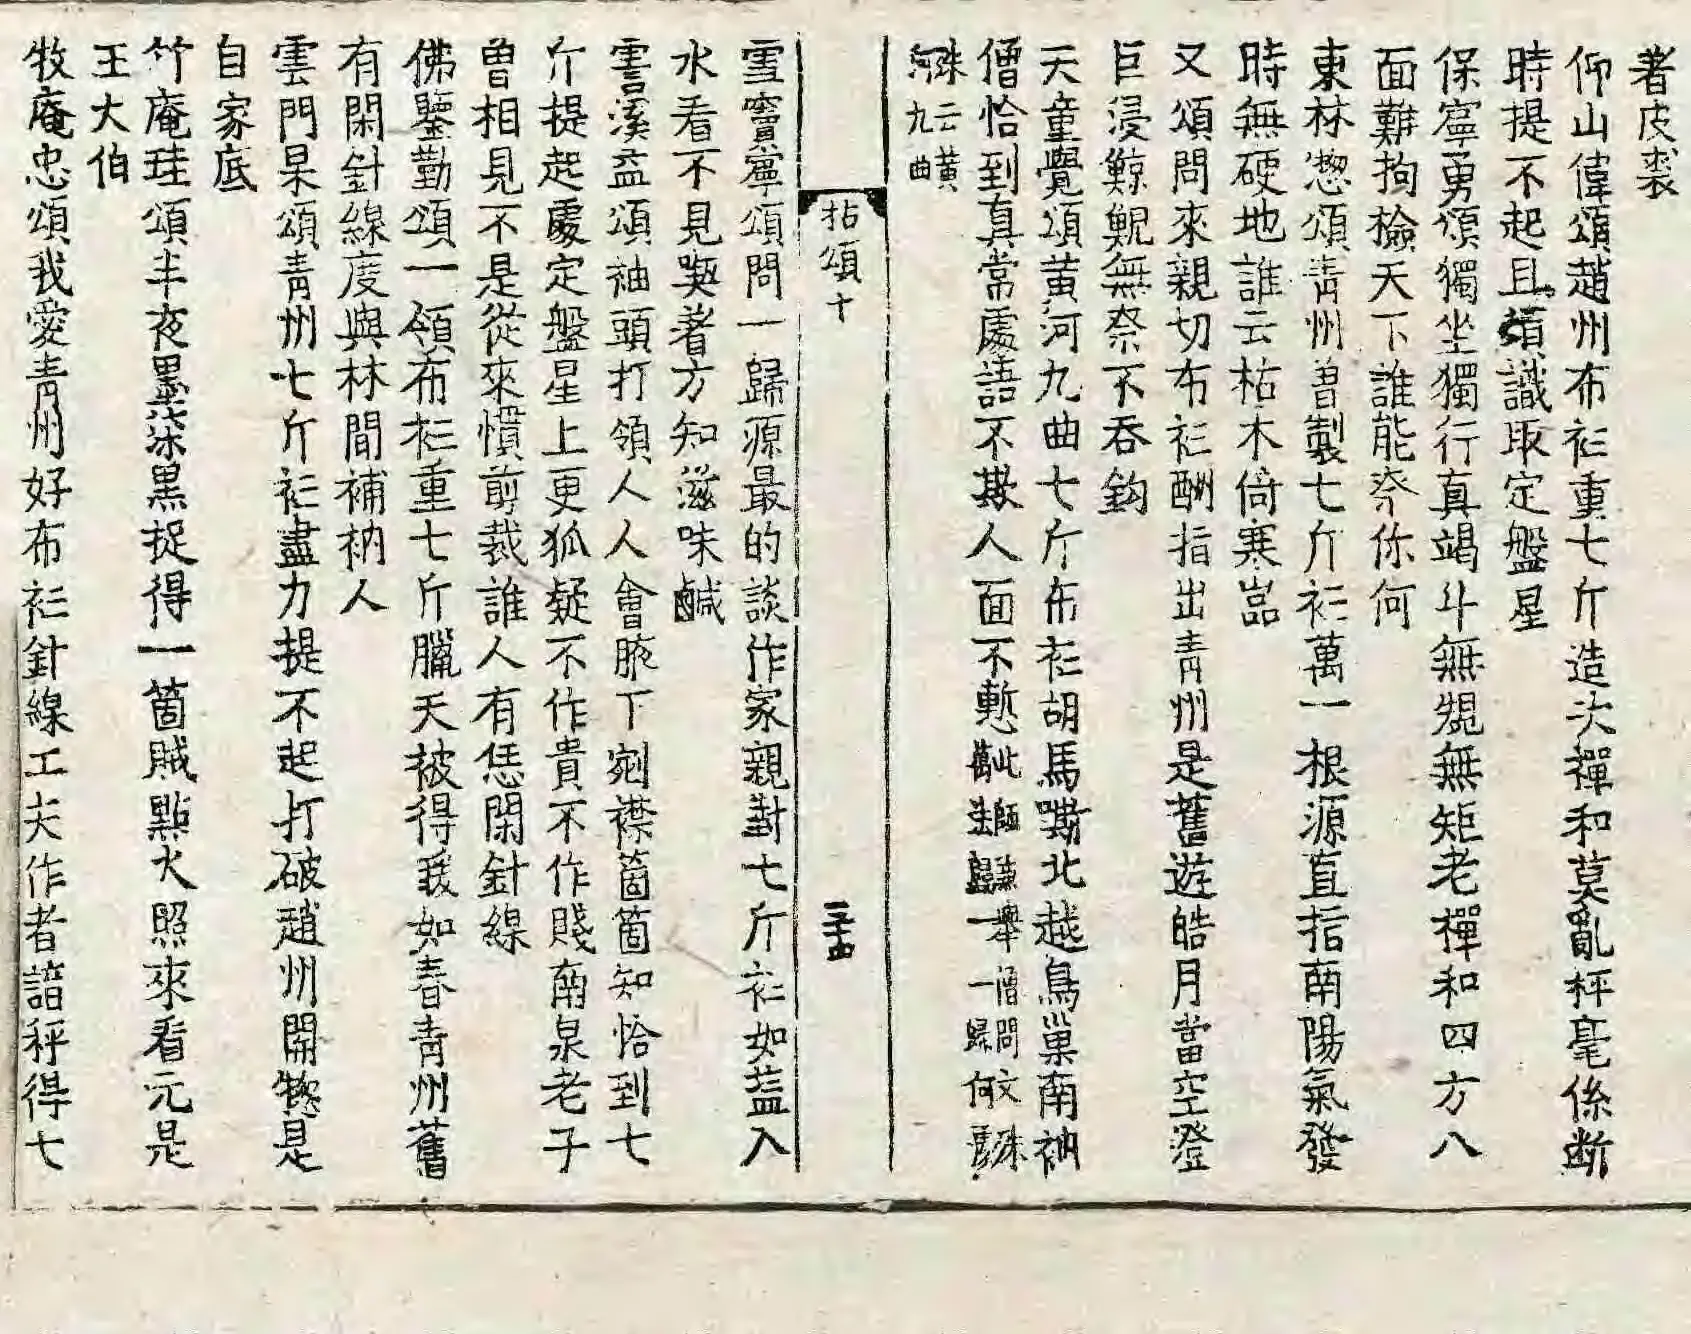 著皮裘
仰山偉頌趙州布衫重七斤造次禪和莫亂秤毫係断
時提不起且須識取定盤星
保寧勇頌獨坐獨行真竭斗無䂓無矩老禪和四方八
面難拘檢天下誰能奈你何
東林惣頌青州曽製七斤衫萬一根源直指南陽氣發
時無硬地誰云枯木倚寒嵓
又頌問來親切布衫酬指出青州是舊遊皓月當空澄
巨浸鯨鯢無奈不吞鈎
天童覺頌黄河九曲七斤布衫胡馬嘶北越鳥巢南衲
僧恰到真常處語不欺人面不慙此師兼舉僧問文殊
萬法歸一一歸何處
殊云黄
河九曲
拈頌十
二十四
雪竇寧頌問一歸源最的談作家親對七斤衫如盐入
水看不見喫著方知滋味鹹
霅溪益頌袖頭打領人人會腋下剜襟箇箇知恰到七
斤提起處定盤星上更狐疑
不作貴不作賤南泉老子
曽相見不是從來慣剪裁誰人有恁閑針線
佛鑒勤頌一領布衫重七斤臘天被得我如春青州舊
有閑針線度與林間補衲人
雲門杲頌青州七斤衫盡力提不起打破趙州関惣是
自家底
竹庵珪頌半夜墨柒黒捉得一箇賊點火照來看元是
王大伯
牧庵忠頌我愛青州好布衫針線工夫作者諳秤得七